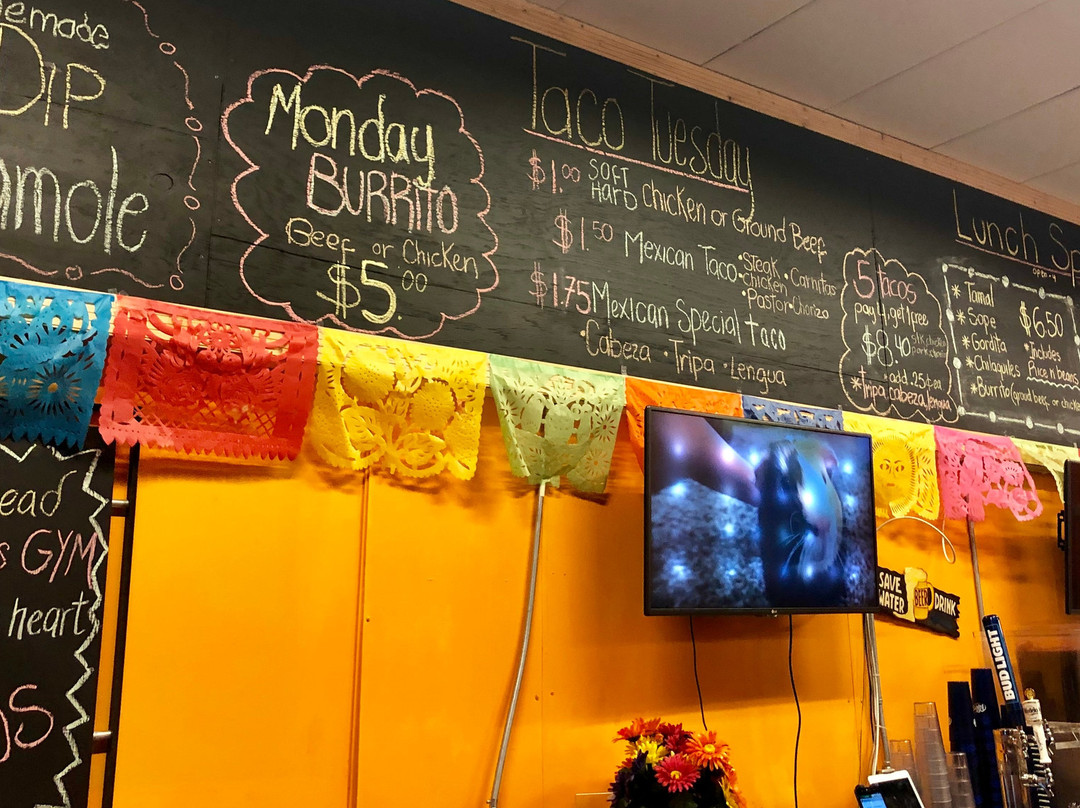 emade
DIP
amole
Monday
BURRITO
Beef or Chicken
$5.00
Taco Tuesday
$1.00 SOFT HARD Chicken or Ground Beef
$1.50 Mexican Taco • Steak • Carnitas
• chicken
• Pastor • Chorizo
$1.75 Mexican Special taco
• Cabeza • Tripa • Lengua
5 tacos
pay 4 get 1 free
$8.40
• add .25¢ en
* tripa, cabeza, lengua
Lunch Sp
* Tamal
* Sope
* Gordita
* Chilaquiles
* Burrito (groud beef or chicke
$6.50
• Includes
Rice n beans
ead
s GYM
heart
os
SAVE
WATER
BEER
DRINK
BUD LIGHT